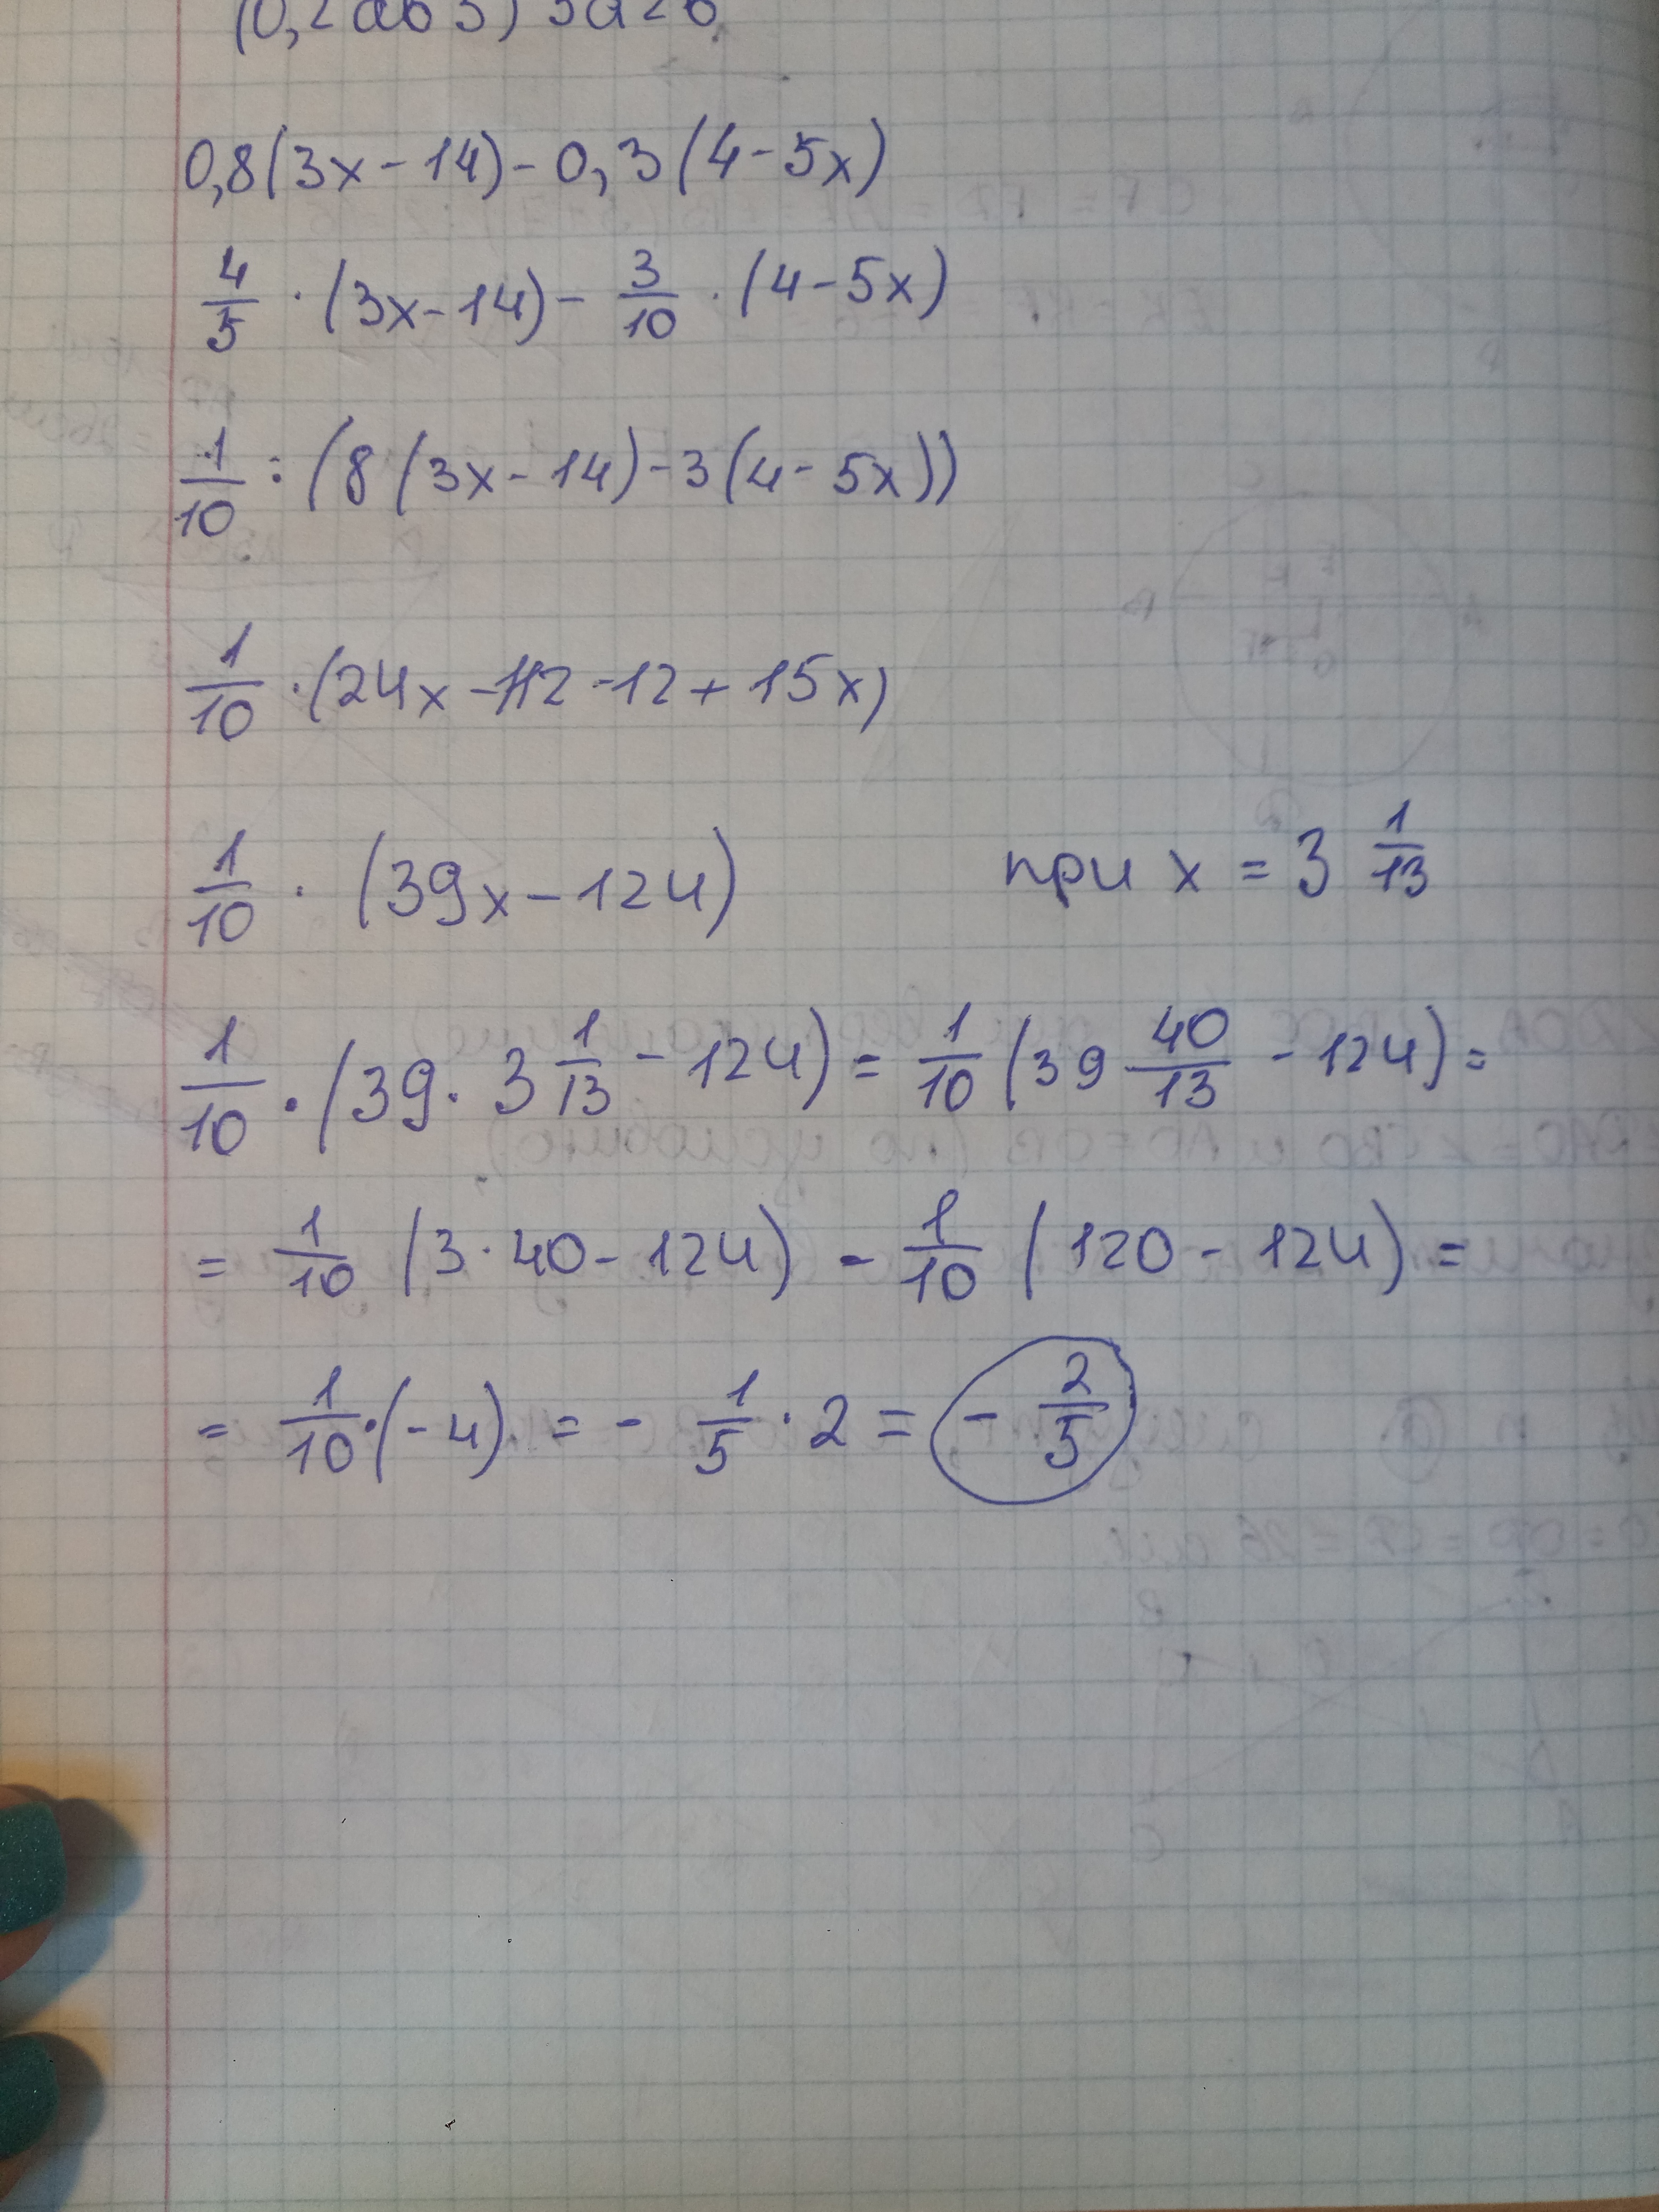 (0,2ab3) 3a2b
0,8(3x-14)-0,3(4-5x)
4/5 · (3x-14)- 3/10 · (4-5x)
1/10 : (8(3x-14)-3(4-5x))
1/10 ·(24x-112-12+15x)
1/10 · (39x-124) при x = 3 1/13
1/10 · (39· 3 1/13 - 124) = 1/10 (39 40/13 - 124) =
= 1/10 (3·40-124) - 1/10 (120-124) =
= 1/10 ·(-4) = - 1/5 · 2 = - 2/5